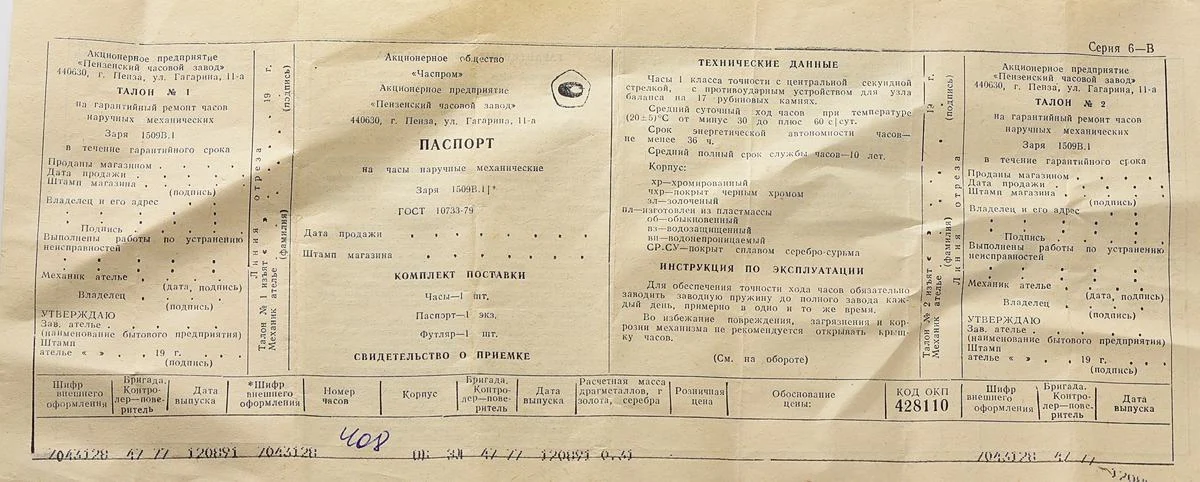 Серия 6—В
Акционерное предприятие
«Пензенский часовой завод»
440630, г. Пенза, ул. Гагарина, 11-а
ТАЛОН № 1
на гарантийный ремонт часов
наручных механических
Заря 1509В.1
в течение гарантийного срока
Проданы магазином
Дата продажи
Штамп магазина
(подпись)
Владелец и его адрес
Подпись
Выполнены работы по устранению
неисправностей
Механик ателье
(дата, подпись)
Владелец
(подпись)
УТВЕРЖДАЮ
Зав. ателье
(наименование бытового предприятия)
Штамп
ателье « » . . 19 г.
(подпись)
Линия отреза
Талон № 1 изъят « » 19 г.
Механик ателье (фамилия) (подпись)
Акционерное общество
«Часпром»
Акционерное предприятие
«Пензенский часовой завод»
440630, г. Пенза, ул. Гагарина, 11-а
ПАСПОРТ
на часы наручные механические
Заря 1509В.1*
ГОСТ 10733-79
Дата продажи
Штамп магазина
КОМПЛЕКТ ПОСТАВКИ
Часы—1 шт.
Паспорт—1 экз.
Футляр—1 шт.
СВИДЕТЕЛЬСТВО О ПРИЕМКЕ
ТЕХНИЧЕСКИЕ ДАННЫЕ
Часы 1 класса точности с центральной секундной
стрелкой, с противоударным устройством для узла
баланса на 17 рубиновых камнях.
Средний суточный ход часов при температуре
(20±5)°С от минус 30 до плюс 60 с|сут.
Срок энергетической автономности часов—
не менее 36 ч.
Средний полный срок службы часов—10 лет.
Корпус:
хр—хромированный
чхр—покрыт черным хромом
зл—золоченый
пл—изготовлен из пластмассы
об—обыкновенный
вз—водозащищенный
вн—водонепроницаемый
СР.СУ—покрыт сплавом серебро-сурьма
ИНСТРУКЦИЯ ПО ЭКСПЛУАТАЦИИ
Для обеспечения точности хода часов обязательно
заводить заводную пружину до полного завода каж-
дый день, примерно в одно и то же время.
Во избежание повреждения, загрязнения и кор-
розии механизма не рекомендуется открывать крыш-
ку часов.
(См. на обороте)
Талон № 2 изъят « » 19 г.
Механик ателье (фамилия) (подпись)
Линия отреза
Акционерное предприятие
«Пензенский часовой завод»
440630, г. Пенза, ул. Гагарина, 11-а
ТАЛОН № 2
на гарантийный ремонт часов
наручных механических
Заря 1509В.1
в течение гарантийного срока
Проданы магазином
Дата продажи
Штамп магазина
(подпись)
Владелец и его адрес
Подпись
Выполнены работы по устранению
неисправностей
Механик ателье
(дата, подпись)
Владелец
(подпись)
УТВЕРЖДАЮ
Зав. ателье
(наименование бытового предприятия)
Штамп
ателье « » . . 19 г.
(подпись)
Шифр внешнего оформления
Бригада. Контро-лер—пове-ритель
Дата выпуска
*Шифр внешнего оформления
Номер часов
Корпус
Бригада. Контро-лер—пове-ритель
Дата выпуска
Расчетная масса драгметаллов, г золота, серебра
Розничная цена
Обоснование цены:
КОД ОКП 428110
Шифр внешнего оформления
Бригада. Контро-лер—пове-ритель
Дата выпуска
408
7043128 47 77 120891 7043128 ЗЛ 47 77 120891 0.31 7043128 47 77